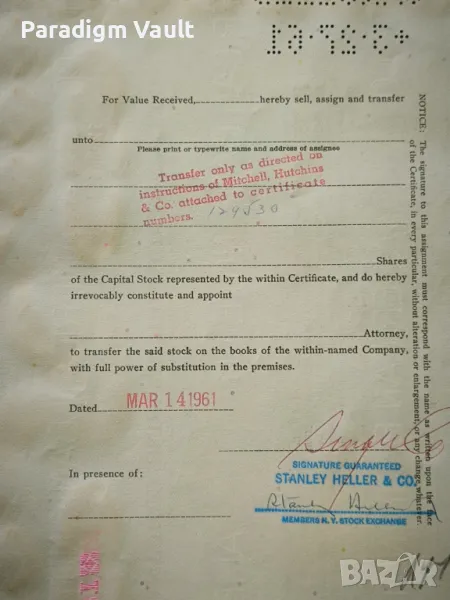 Paradigm Vault
For Value Received, hereby sell, assign and transfer
unto
Please print or typewrite name and address of assignee
Transfer only as directed on
instructions of Mitchell, Hutchins
& Co. attached to certificate
numbers. 129530
Shares
of the Capital Stock represented by the within Certificate, and do hereby
irrevocably constitute and appoint
Attorney,
to transfer the said stock on the books of the within-named Company,
with full power of substitution in the premises.
Dated MAR 14 1961
SIGNATURE GUARANTEED
STANLEY HELLER & CO.
Stanley Heller
MEMBERS N. Y. STOCK EXCHANGE
In presence of:
NOTICE: The signature to this assignment must correspond with the name as written upon the face
of the Certificate, in every particular, without alteration or enlargement, or any change whatever.
bazar